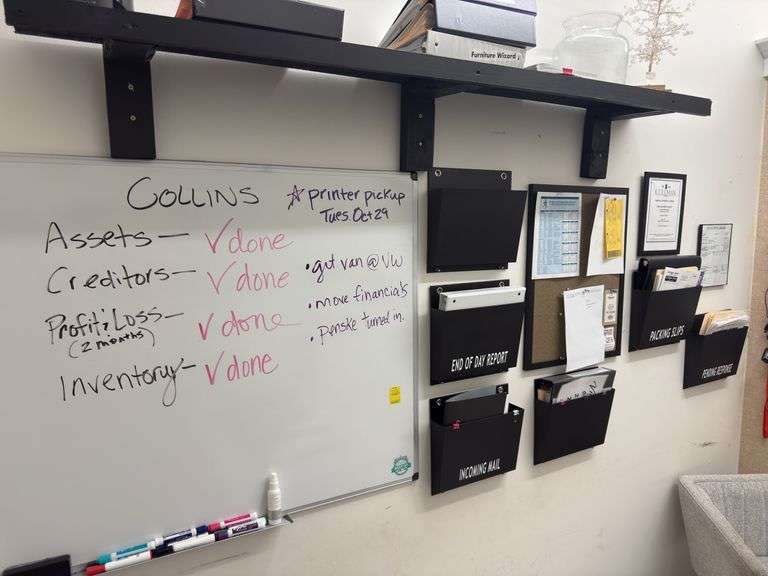 Furniture Wizard
COLLINS
☆ printer pickup
Tues. Oct 29
Assets— ✓done
Creditors— ✓done
Profit & Loss— ✓done
(2 months)
Inventory— ✓done
• get van @ VW
• move financials
• penske turned in.
END OF DAY REPORT
INCOMING MAIL
PACKING SLIPS
PENDING RESPONSE